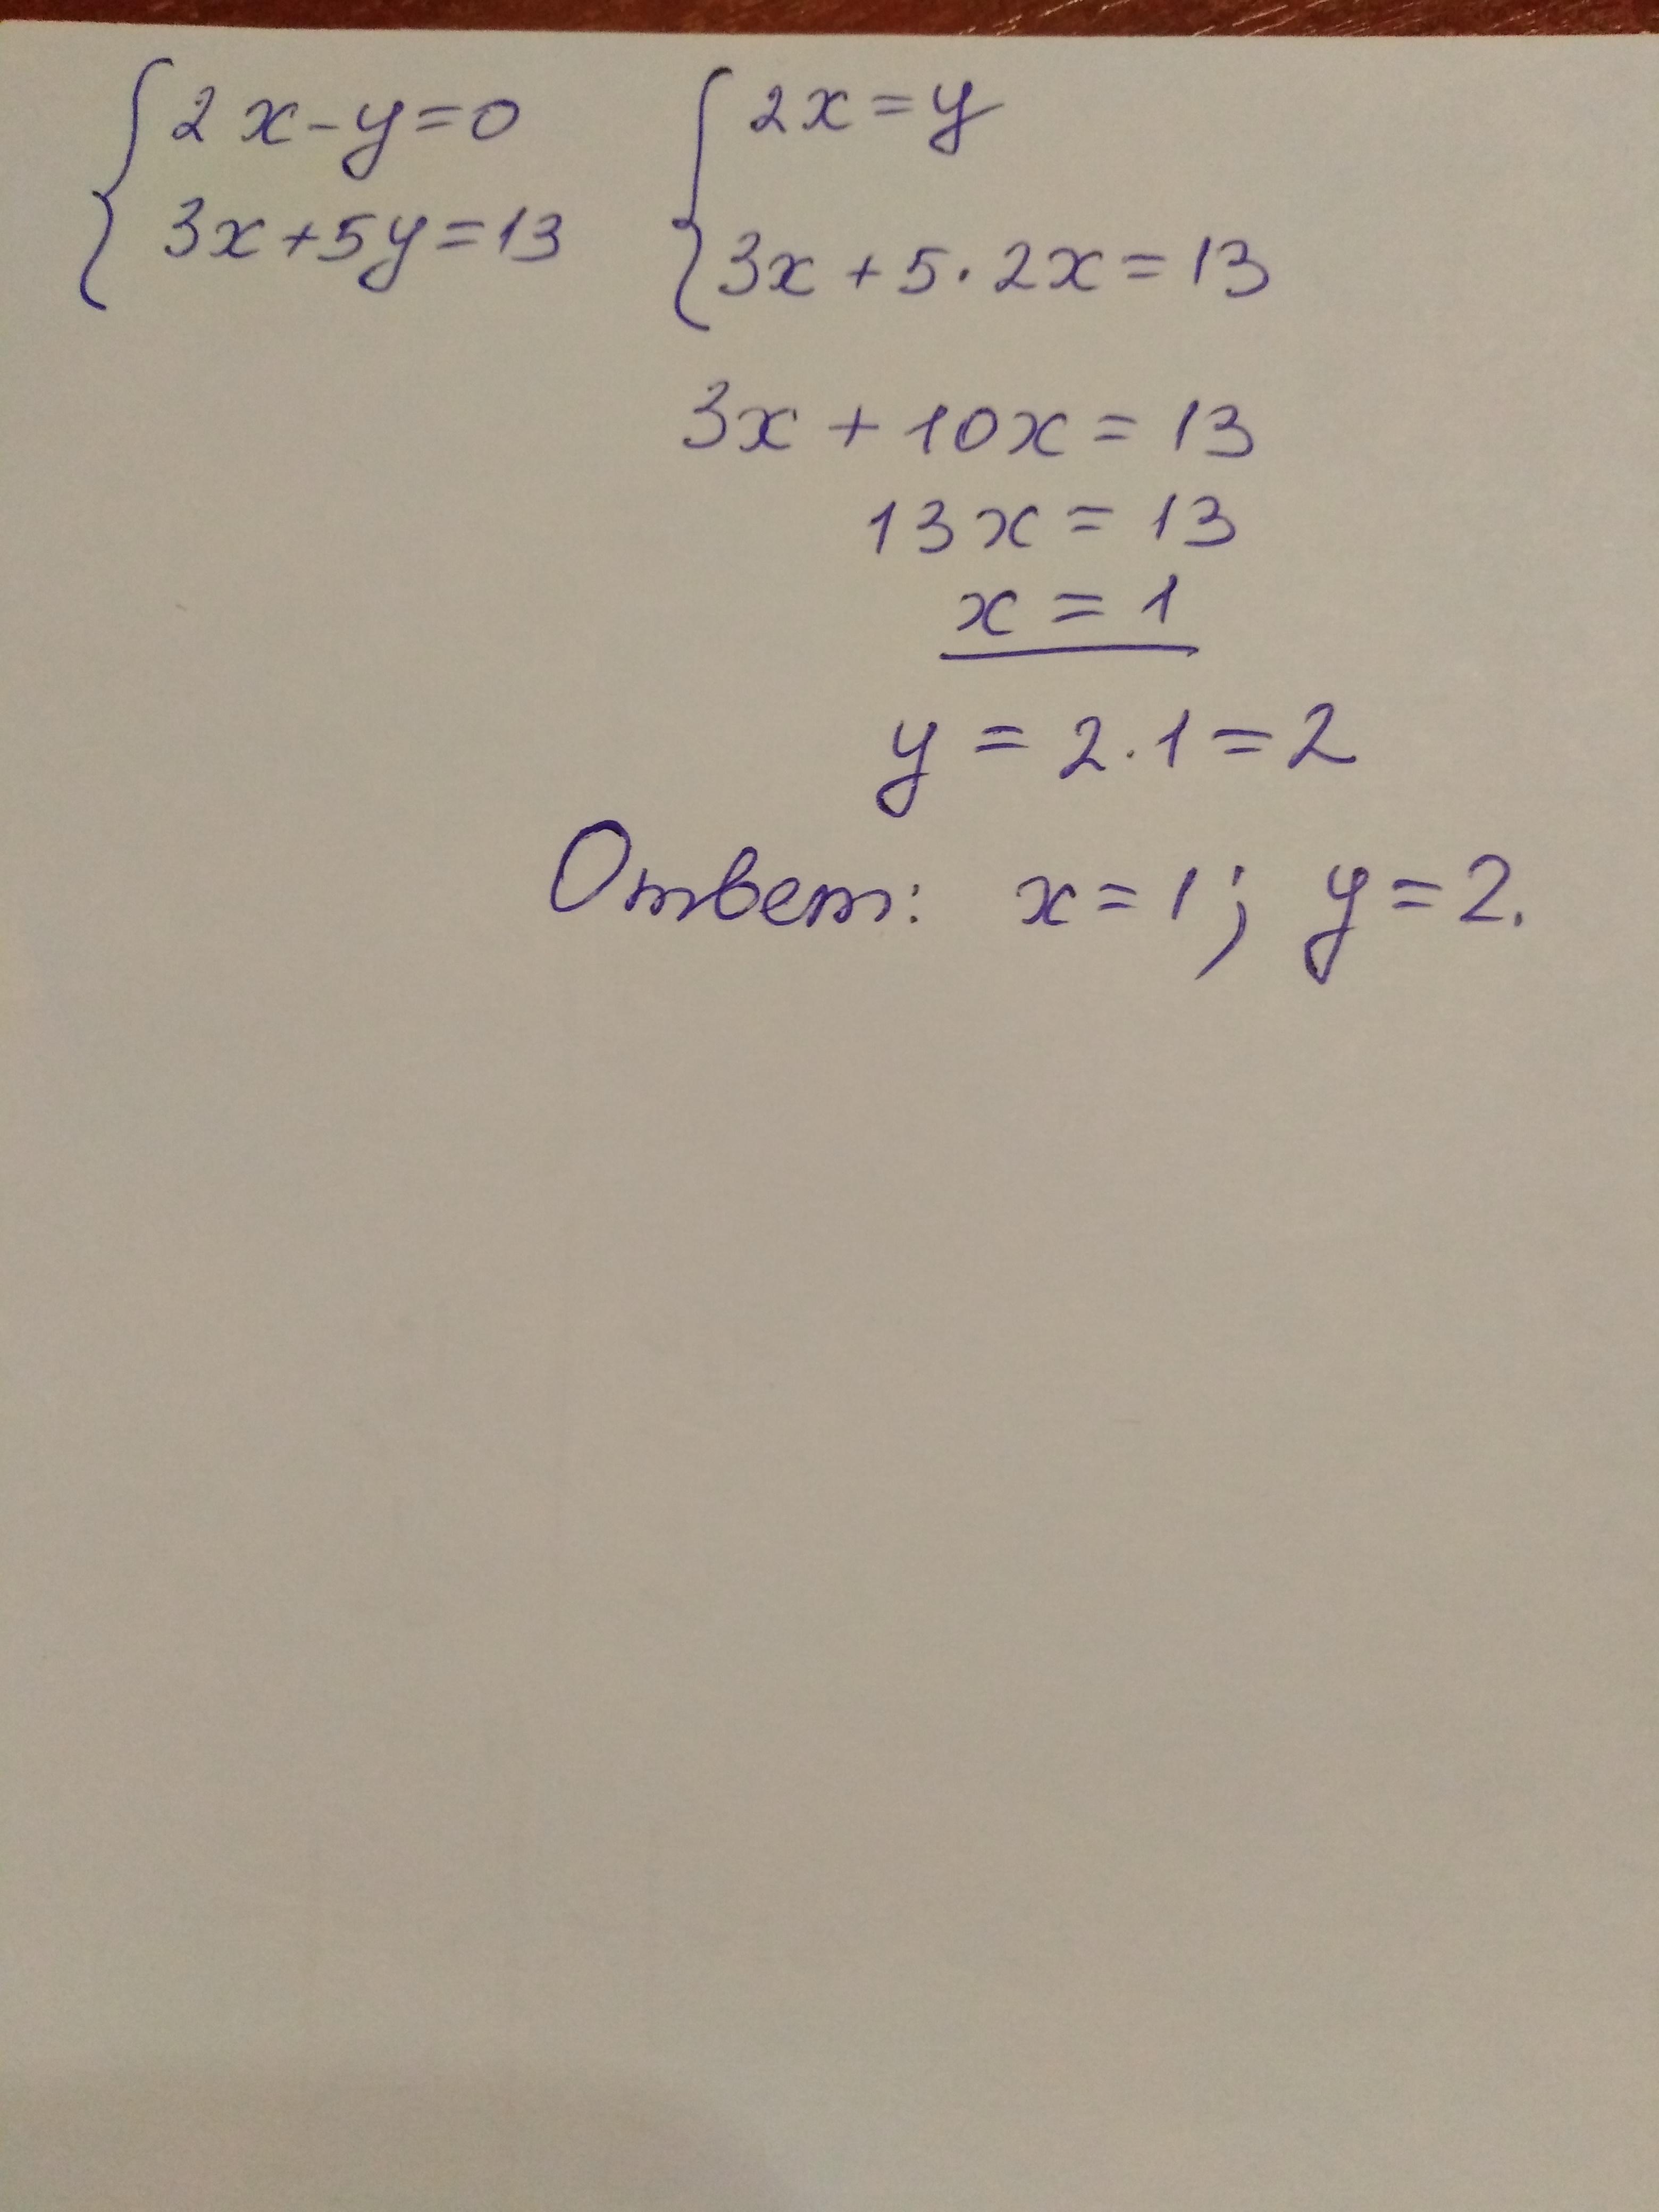 {2x-y=0 {2x=y
3x+5y=13 3x+5·2x=13
3x+10x=13
13x=13
x=1
y=2·1=2
Ответ: x=1; y=2.